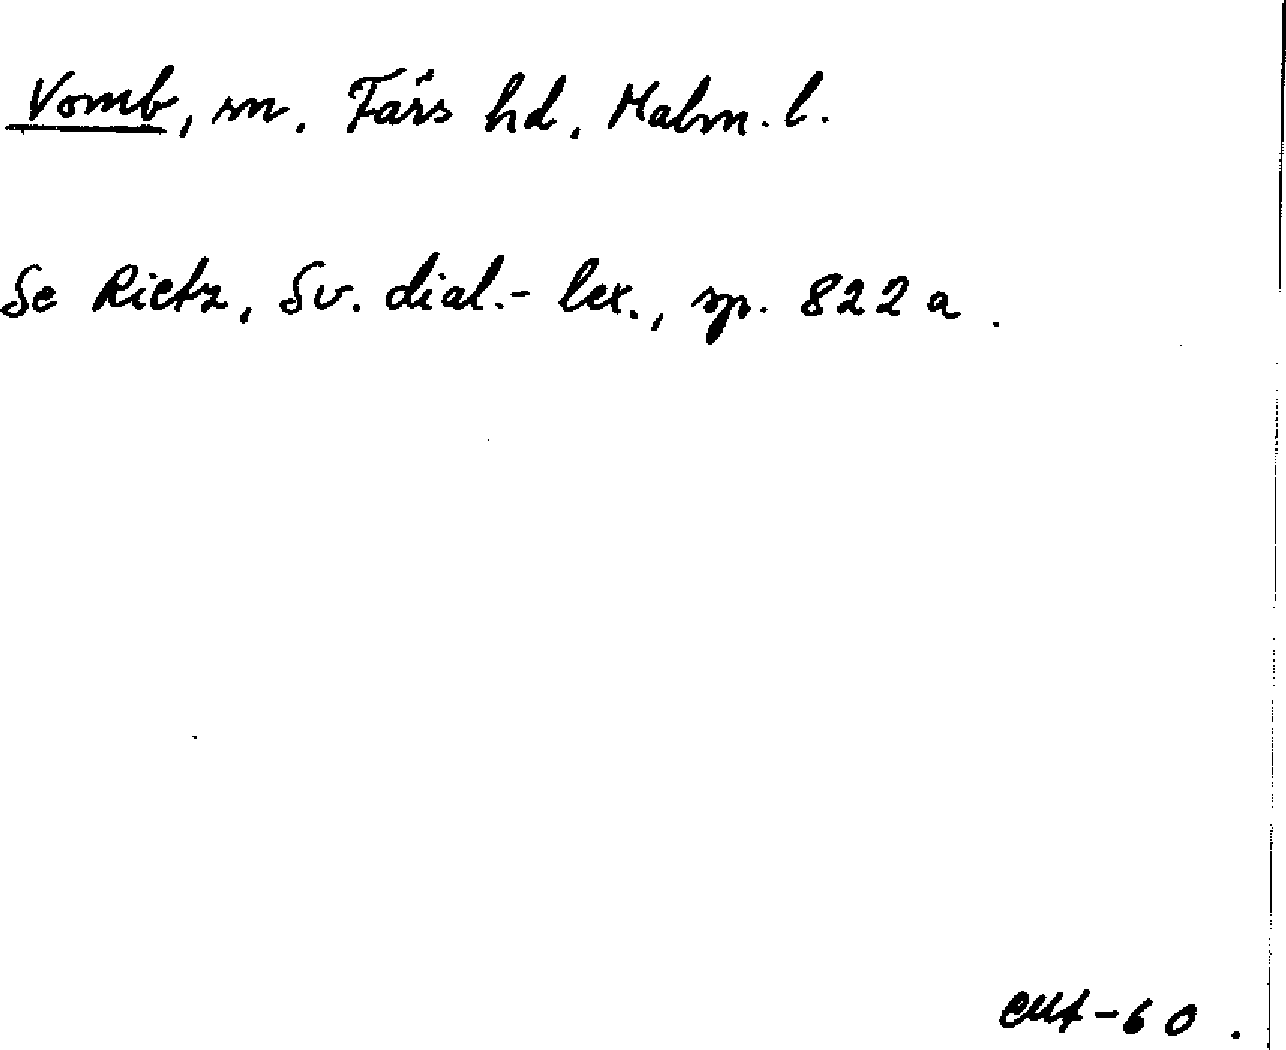 Vomb, sn. Färs hd. Malm. l.
Se Rietz, Sv. dial.-lex., sp. 822 a.
-60.